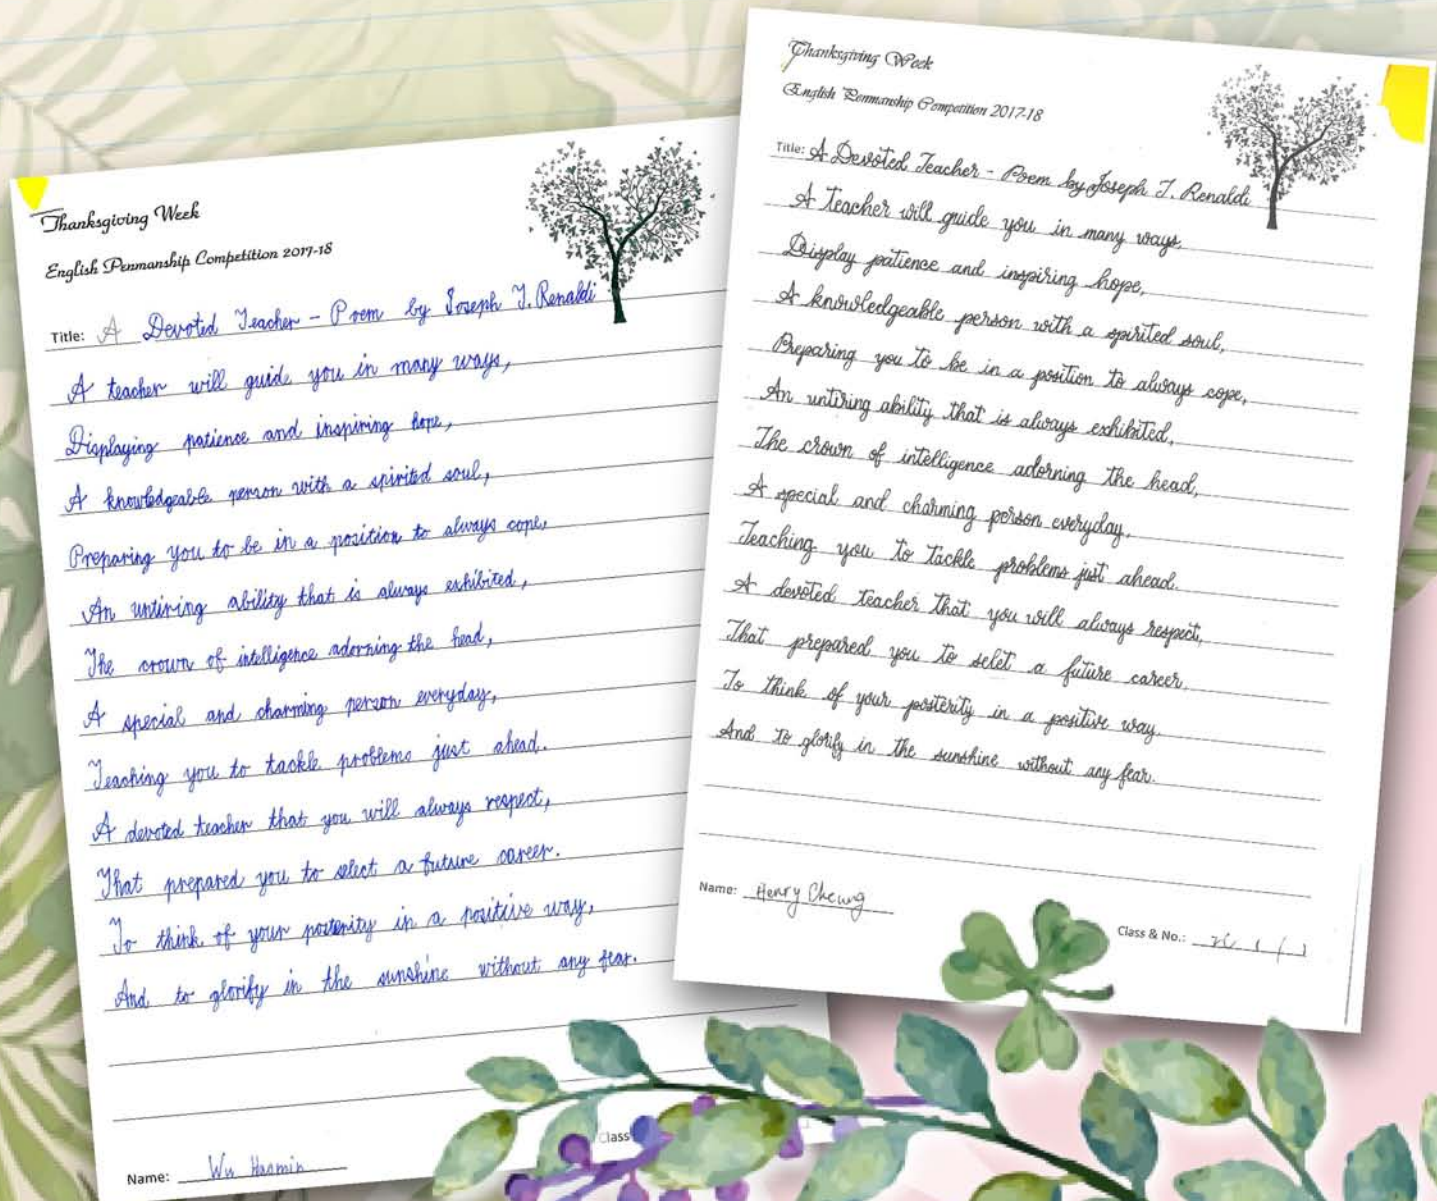 Thanksgiving Week
English Penmanship Competition 2017-18
Title: A Devoted Teacher - Poem by Joseph T. Renaldi
A teacher will guide you in many ways,
Displaying patience and inspiring hope,
A knowledgeable person with a spirited soul,
Preparing you to be in a position to always cope,
An untiring ability that is always exhibited,
The crown of intelligence adorning the head,
A special and charming person everyday,
Teaching you to tackle problems just ahead.
A devoted teacher that you will always respect,
That prepared you to select a future career.
To think of your posterity in a positive way,
And to glorify in the sunshine without any fear.
Class
Name: Wu Haomin
Thanksgiving Week
English Penmanship Competition 2017-18
Title: A Devoted Teacher - Poem by Joseph T. Renaldi
A teacher will guide you in many ways,
Display patience and inspiring hope,
A knowledgeable person with a spirited soul,
Preparing you to be in a position to always cope,
An untiring ability that is always exhibited,
The crown of intelligence adorning the head,
A special and charming person everyday,
Teaching you to tackle problems just ahead.
A devoted teacher that you will always respect,
That prepared you to selet a future career.
To think of your posterity in a positive way.
And to glorify in the sunshine without any fear.
Name: Henry Cheung
Class & No.: